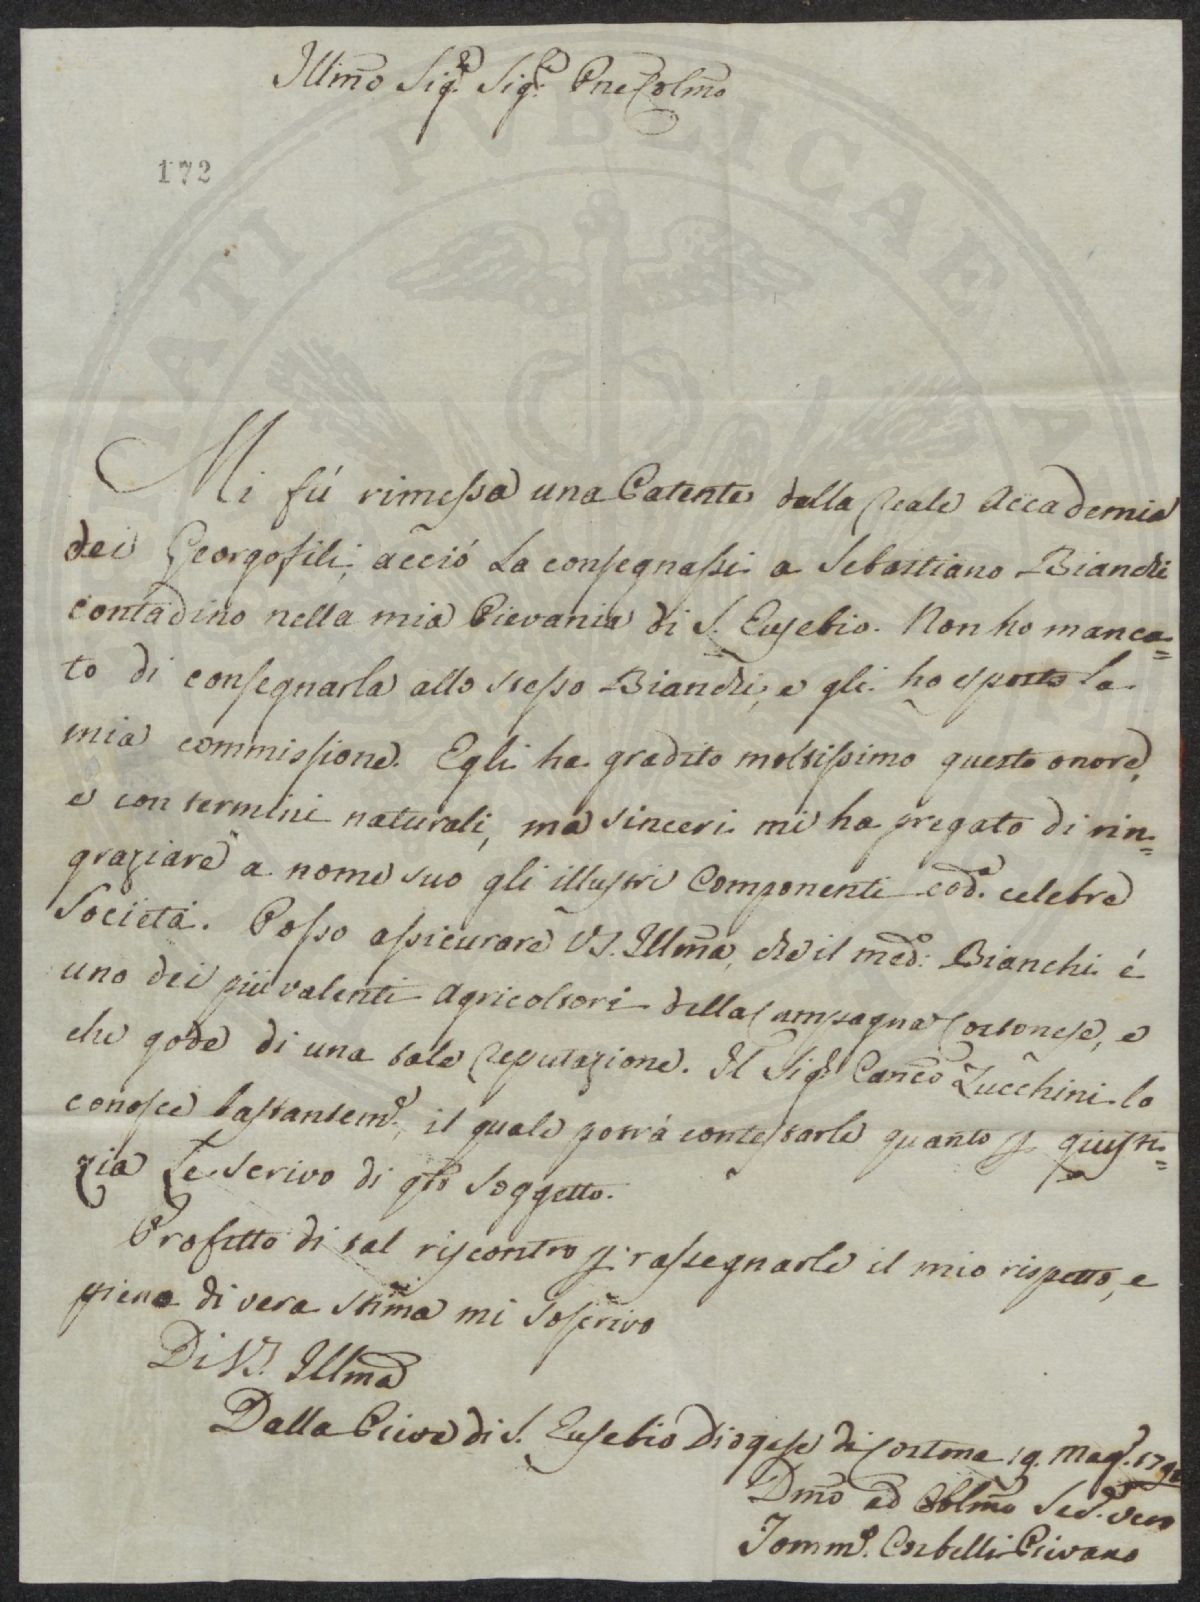 Illmo Sigr. Sigr. Pne Colmo
172
Mi fú rimessa una Patente dalla Reale Accademia
dei Georgofili, acció La consegnassi a Sebastiano Bianchi
contadino nella mia Pievania di S. Eusebio. Non ho manca=
to di consegnarla allo stesso Bianchi, e gli ho esposto la
mia commissione. Egli ha gradito moltissimo questo onore,
e con termini naturali, ma sinceri mi ha pregato di rin=
graziare a nome suo gli illustri Componenti cod.a celebre
Societá. Posso assicurare VS. Illma, che il medo: Bianchi é
uno dei piú valenti Agricoltori della Campagna Cortonese, e
che gode di una tale reputazione. Il Sigr Canco Zucchini lo
conosce bastanteme., il quale potrá contestarle quanto p giusti=
zia Le scrivo di qto soggetto.
Profitto di tal riscontro p rassegnarle il mio rispetto, e
pieno di vera stima mi soscrivo
Di VS. Illma
Dalla Pieve di S. Eusebio Diogese di Cortona 19. Mago.
Dmo ed Oblmo Sere. vero
Tommo. Corbelli Pievano
PVBLICAE